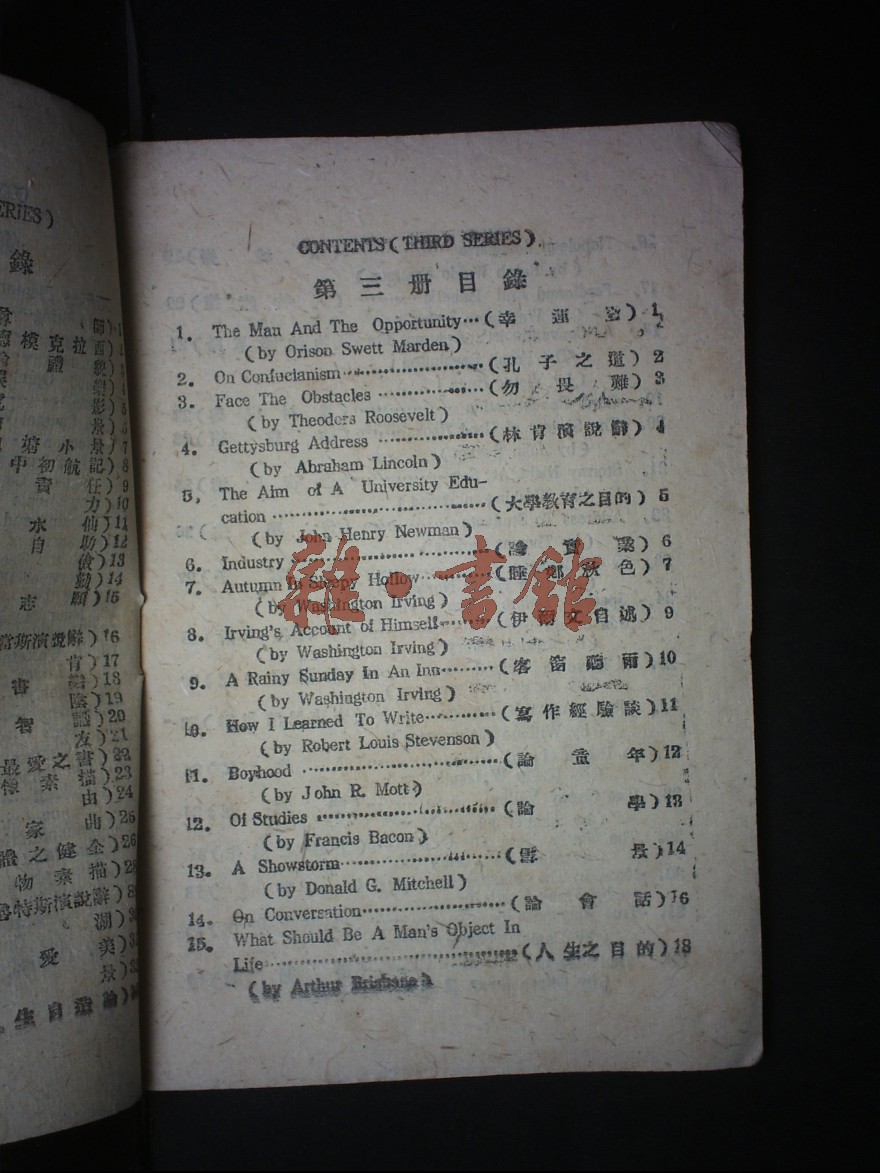 CONTENTS (THIRD SERIES)
第三册目錄
1. The Man And The Opportunity (幸運) 1
(by Orison Swett Marden)
2. On Confucianism (孔子之道) 2
3. Face The Obstacles (勿畏難) 3
(by Theoders Roosevelt)
4. Gettysburg Address (林肯演說辭) 4
(by Abraham Lincoln)
5, The Aim of A University Edu-
cation (大學教育之目的) 5
(by John Henry Newman)
6. Industry (論實業) 6
7. Autumn In Sleepy Hollow (睡鄉秋色) 7
(by Washington Irving)
8. Irving's Account of Himself (伊爾文自述) 9
(by Washington Irving)
9. A Rainy Sunday In An Inn (客窗聽雨) 10
(by Washington Irving)
10. How I Learned To Write (寫作經驗談) 11
(by Robert Louis Stevenson)
11. Boyhood (論童年) 12
(by John R. Mott)
12. Of Studies (論學) 13
(by Francis Bacon)
13. A Showstorm (雪景) 14
(by Donald G. Mitchell)
14. On Conversation (論會話) 16
15. What Should Be A Man's Object In
Life (人生之目的) 18
(by Arthur Brisbane)
雜·書館
ERIES)
錄
模克拉
塘小景 7
中初航記) 8
狂) 9
力) 10
水仙) 11
自助) 12
儉) 13
勤) 14
志願) 15
當斯演說辭) 16
肯) 17
書 18
陰) 19
智 20
友) 21
最愛之書) 22
懷素描) 23
由) 24
家 曲
體之健全
物素描
魯特斯演說辭)
湖)
愛美
景